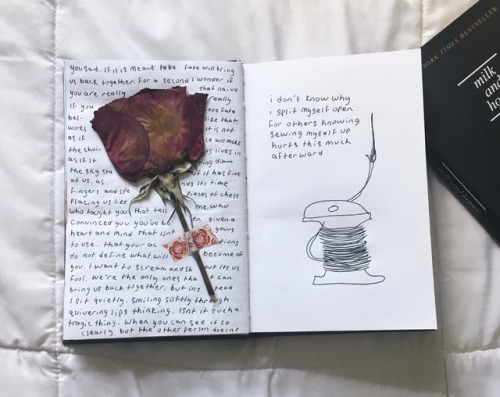 you said. if it is meant to be. fate will bring
us back together. for a second i wonder if
you are really that naive
if you really
bel- eve fate
works like that
as if it is not
the choi we make
as if it lives in
the sky sta ring down
at us as if it has five
fingers and spe nds its time
placing us like pieces of chess
who taught you. that tell me who
convinced you you've been given a
heart and mind that isnt yours
to use. that your ac tions
do not define what will become of
you. i want to scream and sh out its us
fool. we're the only ones that can
bring us back together. but ins tead
i sit quietly. smiling softly through
quivering lips thinking. isnt it such a
tragic thing. when you can see it so
clearly but the other person doesnt
i don't know why
i split myself open
for others knowing
sewing myself up
hurts this much
afterward
NEW YORK TIMES BESTSELLER
milk
and